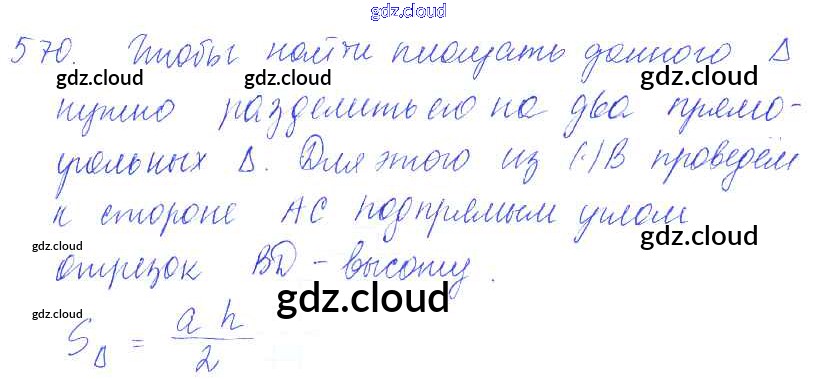 gdz.cloud
570. Чтобы найти площадь данного Δ
gdz.cloud gdz.cloud gdz.cloud
нужно разделить его на два прямо-
угольных Δ. Для этого из (·)В проведём
к стороне АС под прямым углом
gdz.cloud gdz.cloud
отрезок BD - высоту.
gdz.cloud gdz.cloud
S_Δ = a h / 2